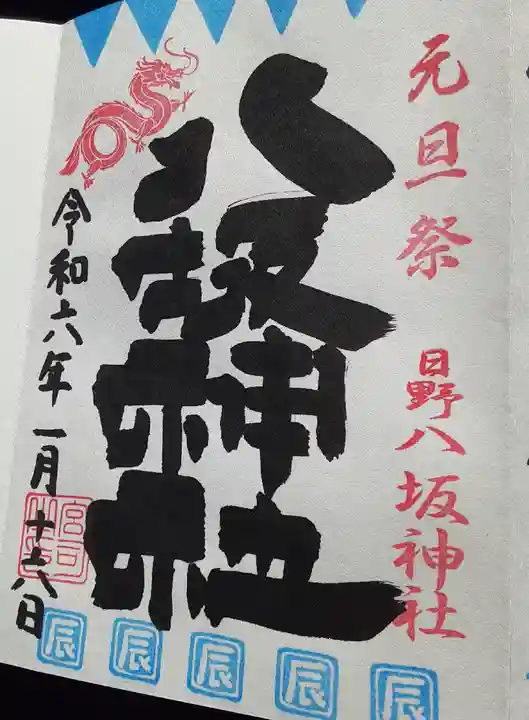 元旦祭
日野八坂神社
八坂神社
令和六年一月十六日
宮司
辰
辰
辰
辰
辰